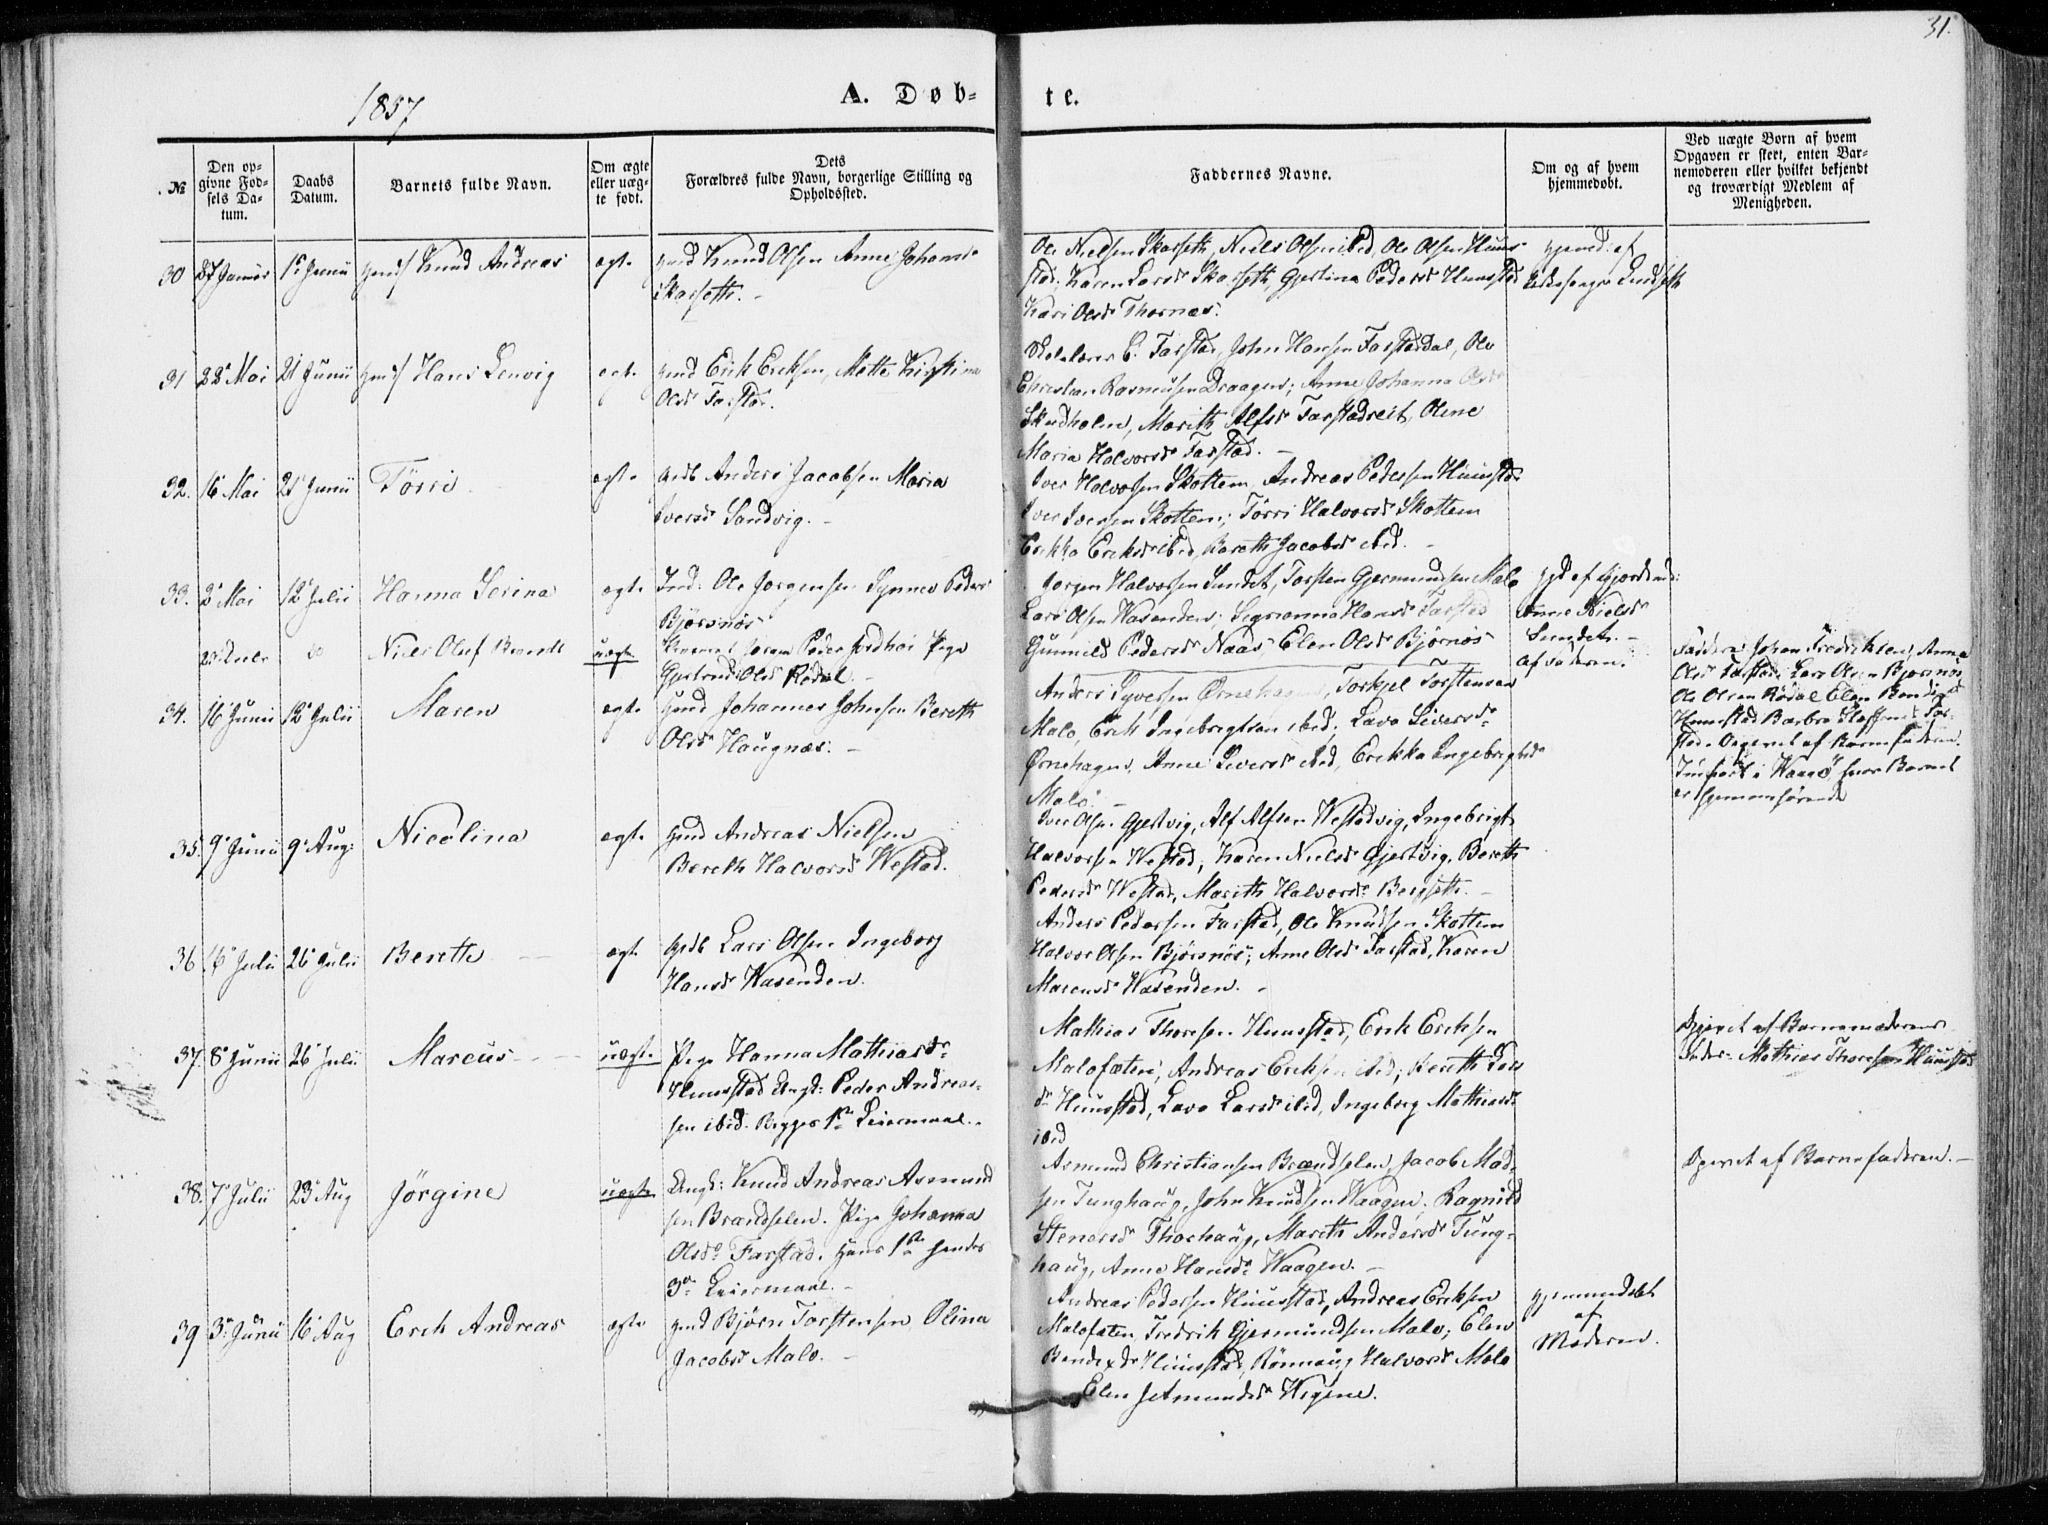 31.
1857
A. Døb-
te.
№
Den op-
givne Fød-
sels Da-
tum.
Daabs
Datum.
Barnets fulde Navn.
Om ægte
eller uæg-
te født.
Dets
Forældres fulde Navn, borgerlige Stilling og
Opholdssted.
Faddernes Navne.
Om og af hvem
hjemmedøbt.
Ved uægte Børn af hvem
Opgaven er skeet, enten Bar-
nemoderen eller hvilket bekjendt
og troværdigt Medlem af
Menigheden.
30 27 Januar 1e Junii Knud Andreas ægte Knud Olsen Anne Johans
Skarseth. -
Ole Nielsen Skarseth, Niels Olsen ibid, Ole Olsen Huus
stad, Karen Larsd Skarseth, Gjertina Pedersd Huustad
Kari Olsd Thornæs.
af
31 22 Mai 21 Junii Hans Lenvig ægt. Erik Eriksen, Mette Kristina
Olsd Farstad.
Skolelærer E. Farstad, John Hansen Farstaddal, Ole
Christian Rasmusen Draagen; Anne Johanna Olsd
Skudholm, Marith Alfsd Farstadreit, Oline
Maria Halvorsd Farstad. -
32. 16 Mai 21 Junii Törri ægte Anders Jacobsen Maria
Iversd Sandvig. -
Iver Halvorsen Skottem, Andreas Pedersen Huustad
Iver Iversen Skottem; Törri Halvorsd Skottem
Erikka Eriksd ibid, Bereth Jacobsd ibid. -
33. 2 Mai 12 Julii Hanna Serina ægte Ole Jorgensen Synnev Peders
Björsnös
Jorgen Halvorsen Sundet, Torsten Gjermundsen Malo
Lars Olsen Wasenden; Segrianna Hansd Farstad
Gunnild Pedersd Naas Elen Olsd Björnös
af
Anne Nielsd
Sundet. -
do Niels Oluf Berndt uægte Peder Pige
Gjertrud Olsd Rödal. -
af Faderen.
Faddere Johan Fredriksen, Anna
Olsd Farstad, Lars Olsen Bjørsnös
Ole Olsen Rödal Elen Bendixd
Huustad Barbro Far-
stad. Opgivet af Barnefaderen.
Indført i Waagö hvor Barnet
er hjemmehørende
34. 16 Junii 12 Julii Maren ægte Johannes Johnsen Bereth
Olsdr Haugnæs. -
Anders Syversen Ørnehagen, Torkjel Torstensen
Malo, Erik Ingebrigtsen ibid. Lava Siversdr
Ørnehagen, Anne Siversdr ibid, Erikka Ingebrigtsd
Malo. -
35. 9 Junii 9 Aug: Nicolina ægte Andreas Nielsen
Bereth Halvorsd Westad.
Iver Olsen Gjertvig, Alf Alfsen Westadvig, Ingebrigt
Halvorsen Westad, Karen Nielsd Gjertvig, Bereth
Pedersdr Westad, Marith Halvorsdr Bergseth. -
36 16 Julii 26 Julii Bereth ægt. Lars Olsen Ingeborg
Hansdr Wasenden.
Anders Pedersen Farstad, Ole Knudsen Skottem
Halvor Olsen Björsnös; Anne Olsd Farstad, Karen
Marcusd Wasenden. -
37. 8 Junii 26 Julii Marcus uægte Pige Hanna Mathiasdr
Huustad Ungk: Peder Andreas-
sen ibid. Begges 1ste Leiermaal. -
Mathias Thoresen Huustad, Erik Eriksen
Malofæten, Andreas Eriksen ibid; Bereth Lars
dr Huustad, Lava Larsdr ibid, Ingeborg Mathiasdr
ibid
Opgivet af Barnemoderens
Fader Mathias Thoresen Huustad
38. 7 Julii 23 Aug Jörgine uægte Ungk: Knud Andreas Asmund
sen Brandselen. Pige Johanna
Olsdr Farstad. Hans 1ste hendes
3die Leiermaal. -
Asmund Christiansen Brandselen, Jacob Mad-
sen Tunghaug, John Knudsen Waagen. Ragnild
Stenersdr Thorhaug, Marith Andersdr Tung-
haug, Anne Hansdr Waagen. -
Opgivet af Barnefaderen. -
39 3 Junii 16 Aug Erik Andreas ægte Björn Torstensen Olina
Jacobsd Malo. -
Andreas Pedersen Huustad, Andreas Eriksen
Malofæten, Fredrik Gjermundsen Malo; Elen
Bendixdr Huustad, Rönnaug Halvorsd Malo
Elen Wigene.
hjemmedøbt
af
Moderen.